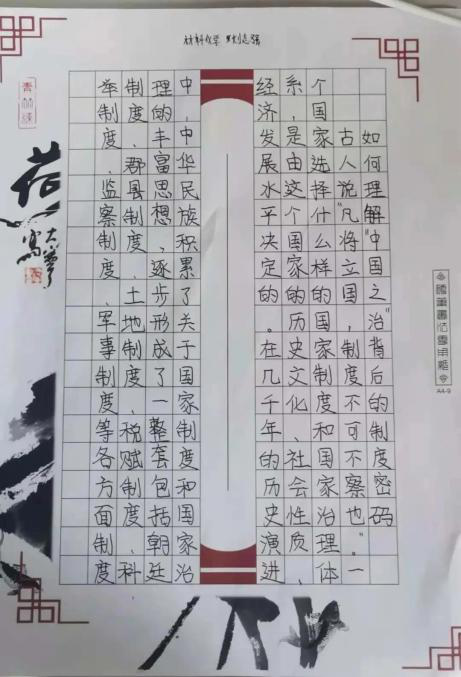 如何理解"中国之治"背后的制度密码
古人说"凡将立国，制度不可不察也。"一
个国家选择什么样的国家制度和国家治理体
系，是由这个国家的历史文化、社会性质、
经济发展水平决定的。在几千年的历史演进
中，中华民族积累了关于国家制度和国家治
理的丰富思想，逐步形成了一整套包括朝廷
制度、郡县制度、土地制度、税赋制度、科
举制度、监察制度、军事制度等各方面制度
A4-9
荷